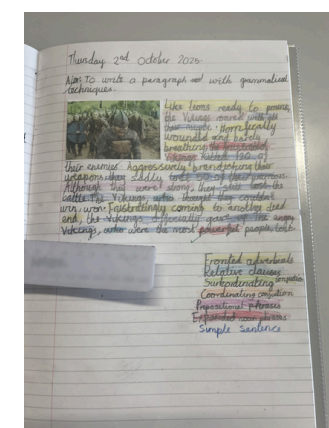 Thursday 2nd October 2025
Aim: To write a paragraph with grammatical
techniques.
Like lions ready to pounce,
the Vikings roared with all
their might. Horrifically
wounded and barely
breathing the
Vikings killed 120 of
their enemies. Aggressively brandishing their
weapons they sadly lost 50 of their
Although they were strong, they still lost the
battle. The Vikings, who thought they couldnt
win, won. Frustratingly coming to another dead
end, the Vikings officially gave up. The angry
Vikings, who were the most powerful people, lost.
Fronted adverbials
Relative clauses
Subordinating conjuction
Coordinating conjuction
Prepositional phrases
Expanded noun phrases
Simple sentence